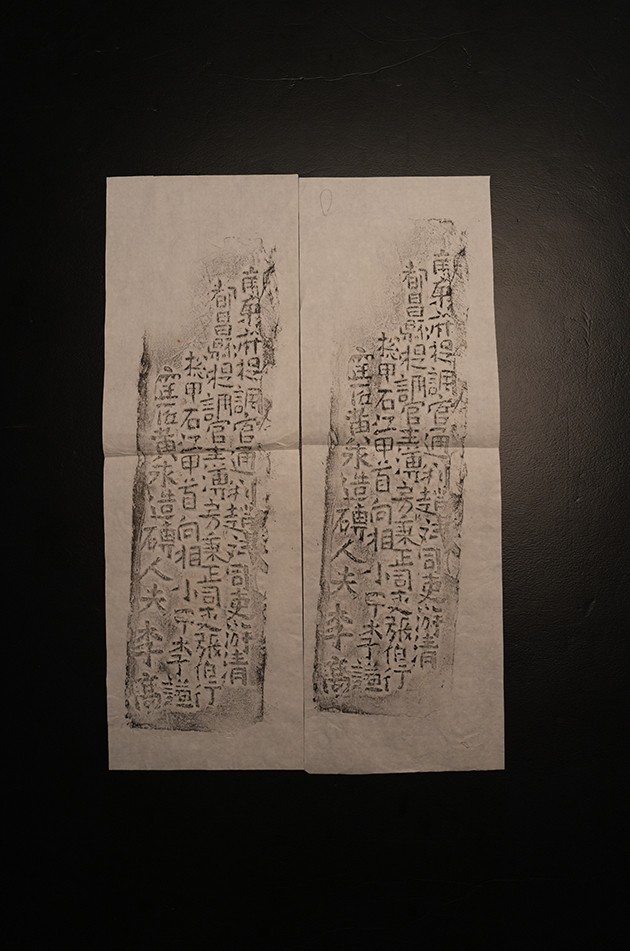 南康府提調官通判趙斌司吏游清
都昌縣提調官主簿房秉正司吏張伯行
總甲石江甲首向相小甲李謙
窑匠黃永造磚人夫李髙
南康府提調官通判趙斌司吏游清
都昌縣提調官主簿房秉正司吏張伯行
總甲石江甲首向相小甲李謙
窑匠黃永造磚人夫李髙